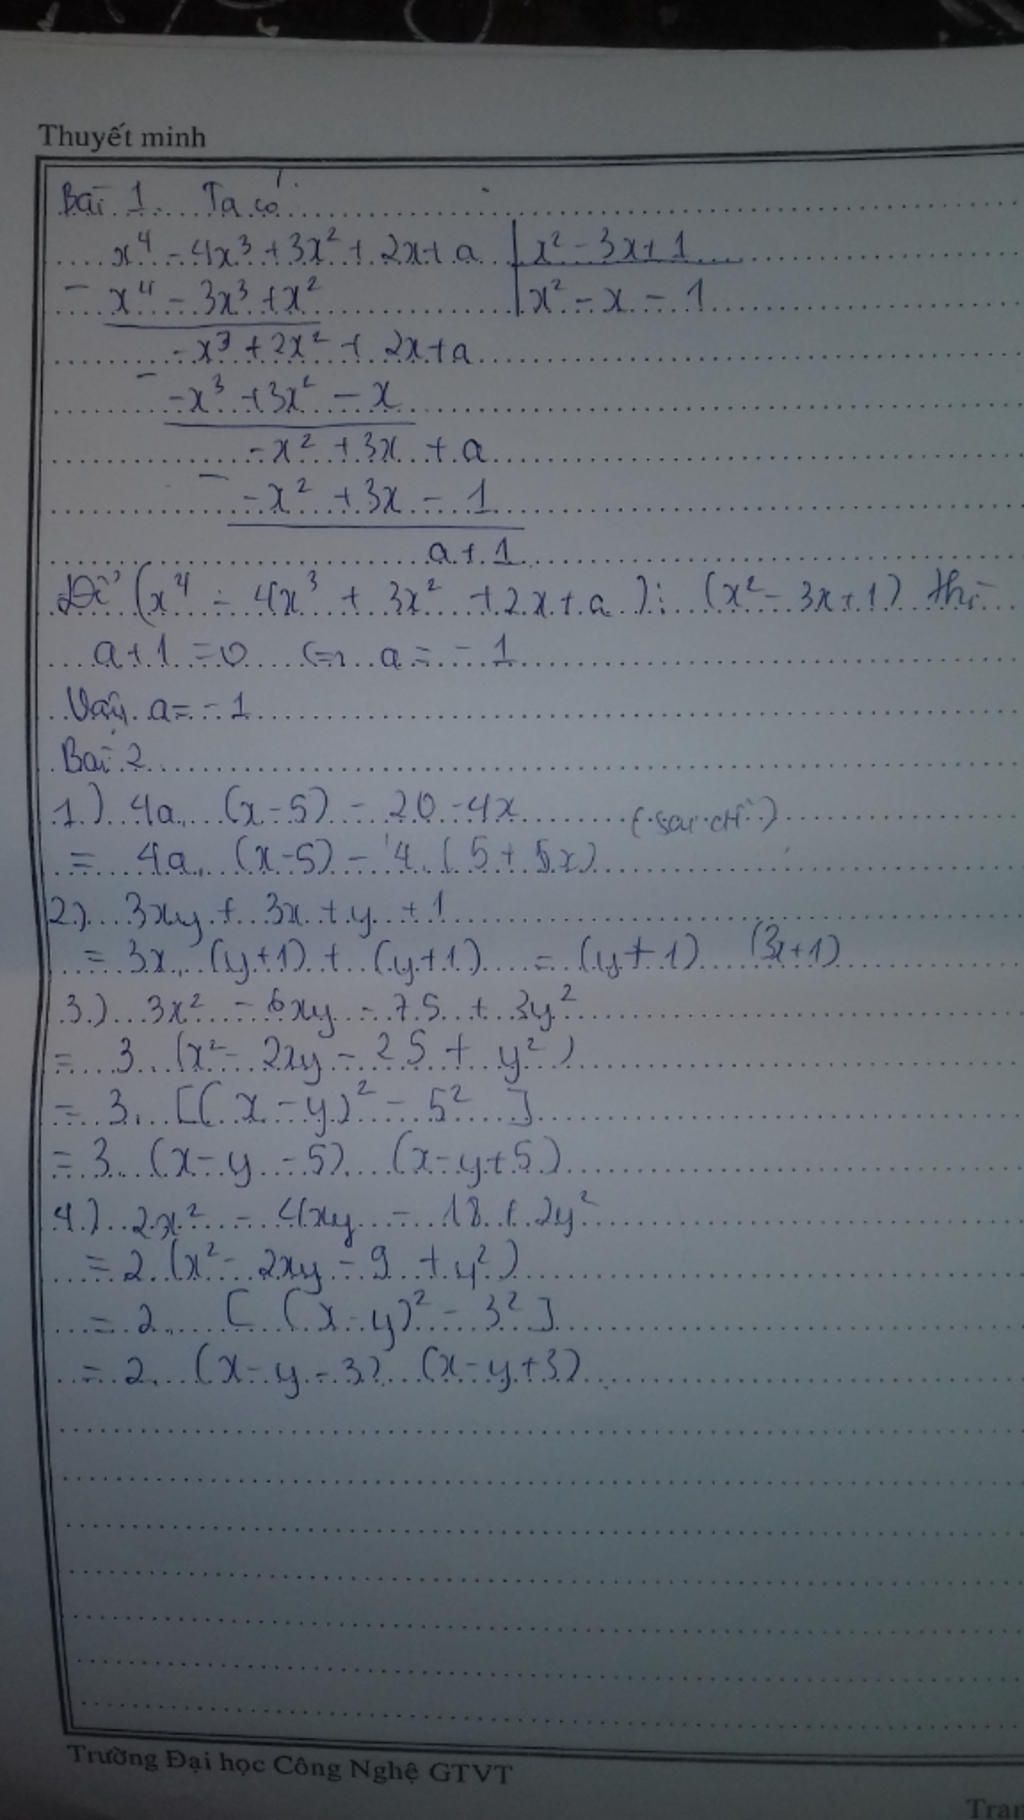 Thuyết minh
Bài 1. Ta có
x⁴ - 4x³ + 3x² + 2x + a | x² - 3x + 1
- x⁴ - 3x³ + x² | x² - x - 1
-x³ + 2x² + 2x + a
- -x³ + 3x² - x
-x² + 3x + a
- -x² + 3x - 1
a + 1
Để (x⁴ - 4x³ + 3x² + 2x + a) ⋮ (x² - 3x + 1) thì
a + 1 = 0 <=> a = -1
Vậy a = -1
Bài 2
1.) 4a (x - 5) - 20 - 4x
= 4a (x - 5) - 4 (5 + 5x)
2.) 3xy + 3x + y + 1
= 3x (y + 1) + (y + 1) = (y + 1) (3x + 1)
3.) 3x² - 6xy - 75 + 3y²
= 3 (x² - 2xy - 25 + y²)
= 3. [(x - y)² - 5²]
= 3 (x - y - 5) (x - y + 5)
4.) 2x² - 4xy - 18 + 2y²
= 2 (x² - 2xy - 9 + y²)
= 2 [(x - y)² - 3²]
= 2 (x - y - 3) (x - y + 3)
Trường Đại học Công Nghệ GTVT